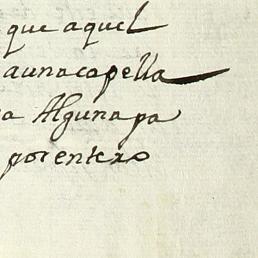 que aquel
a una capella
a Alguna pa
por entero